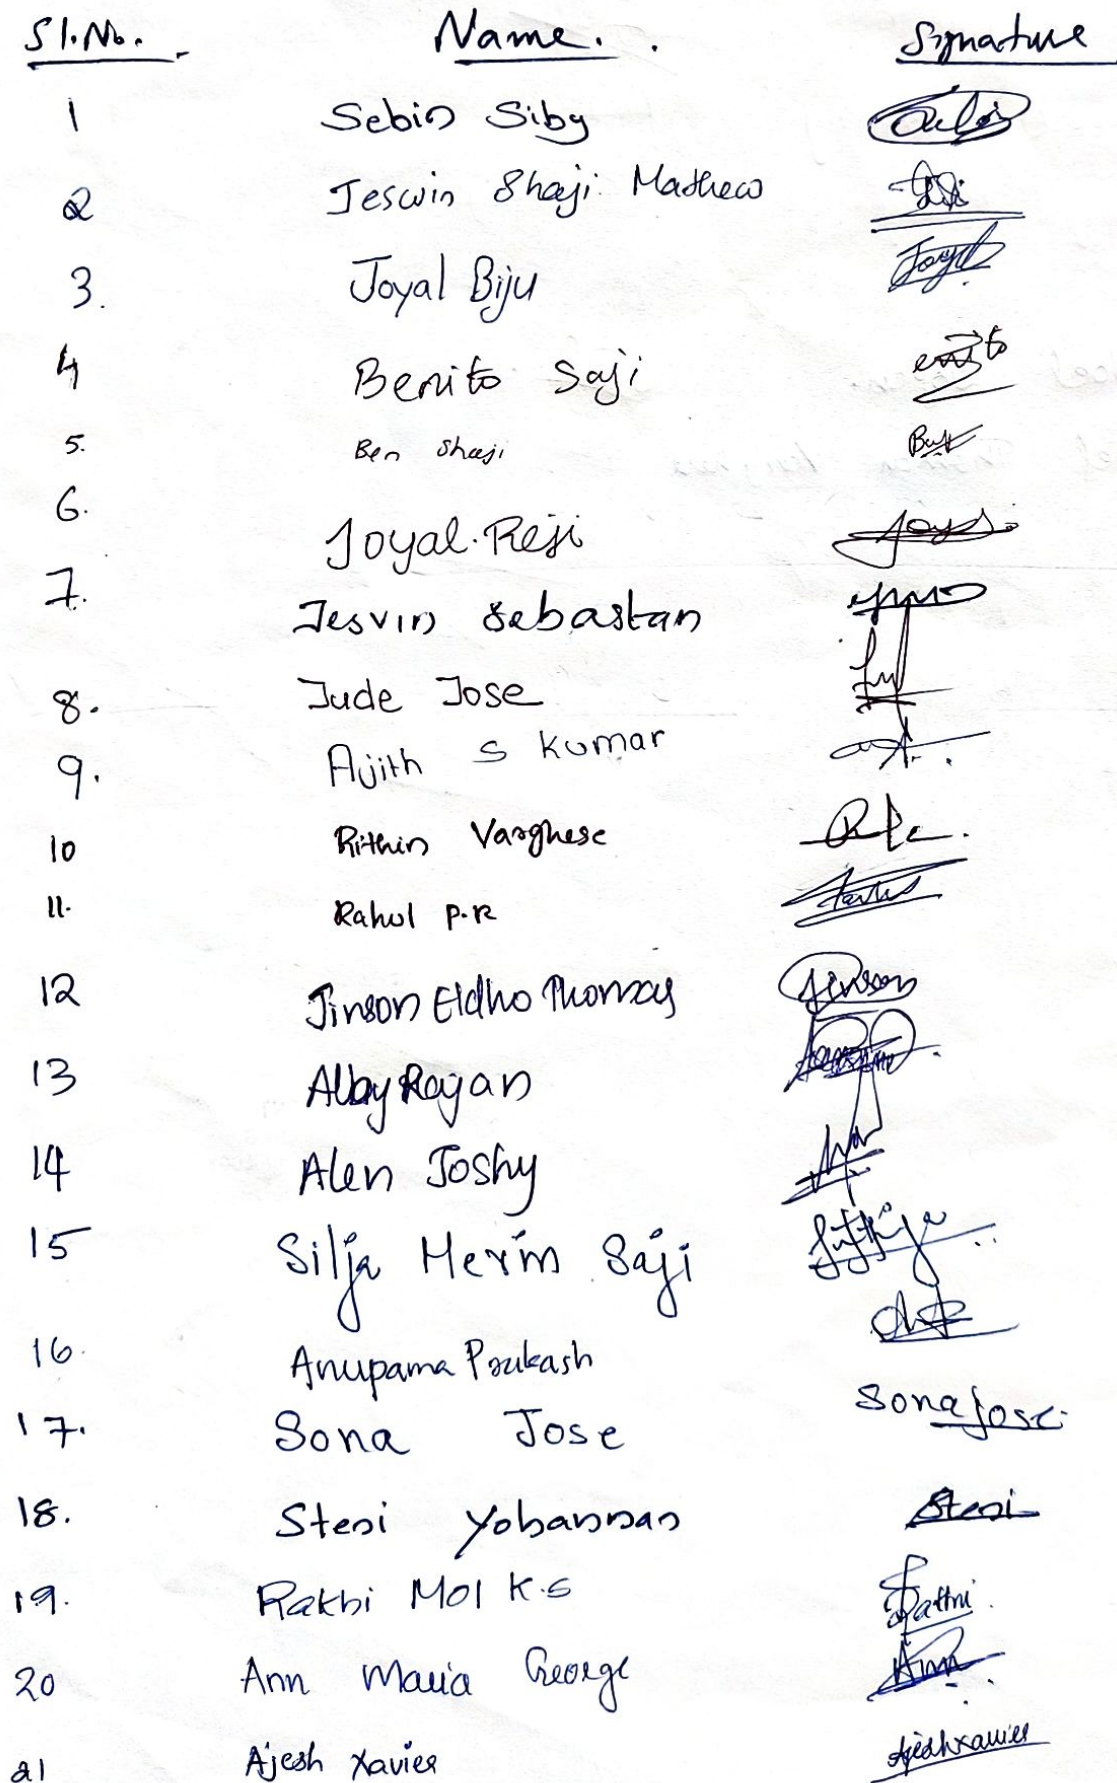 Sl.No. Name. Signature
1 Sebin Siby
2 Jeswin Shaji Mathew
3. Joyal Biju
4 Benito Saji
5. Ben Shaji
6. Joyal.Reji
7. Jesvin Sebastan
8. Jude Jose
9. Ajith S Kumar
10 Rithin Varghese
11. Rahul P.R
12 Jinson Eldho Thomas Jinson
13 Alby Rajan
14 Alen Joshy
15 Silja Merin Saji
16. Anupama Prakash
17. Sona Jose Sona Jose.
18. Steni Yohannan Steni
19. Rakhi Mol K.S
20 Ann Maria George Ann
21 Ajesh Xavier Ajeshxavier